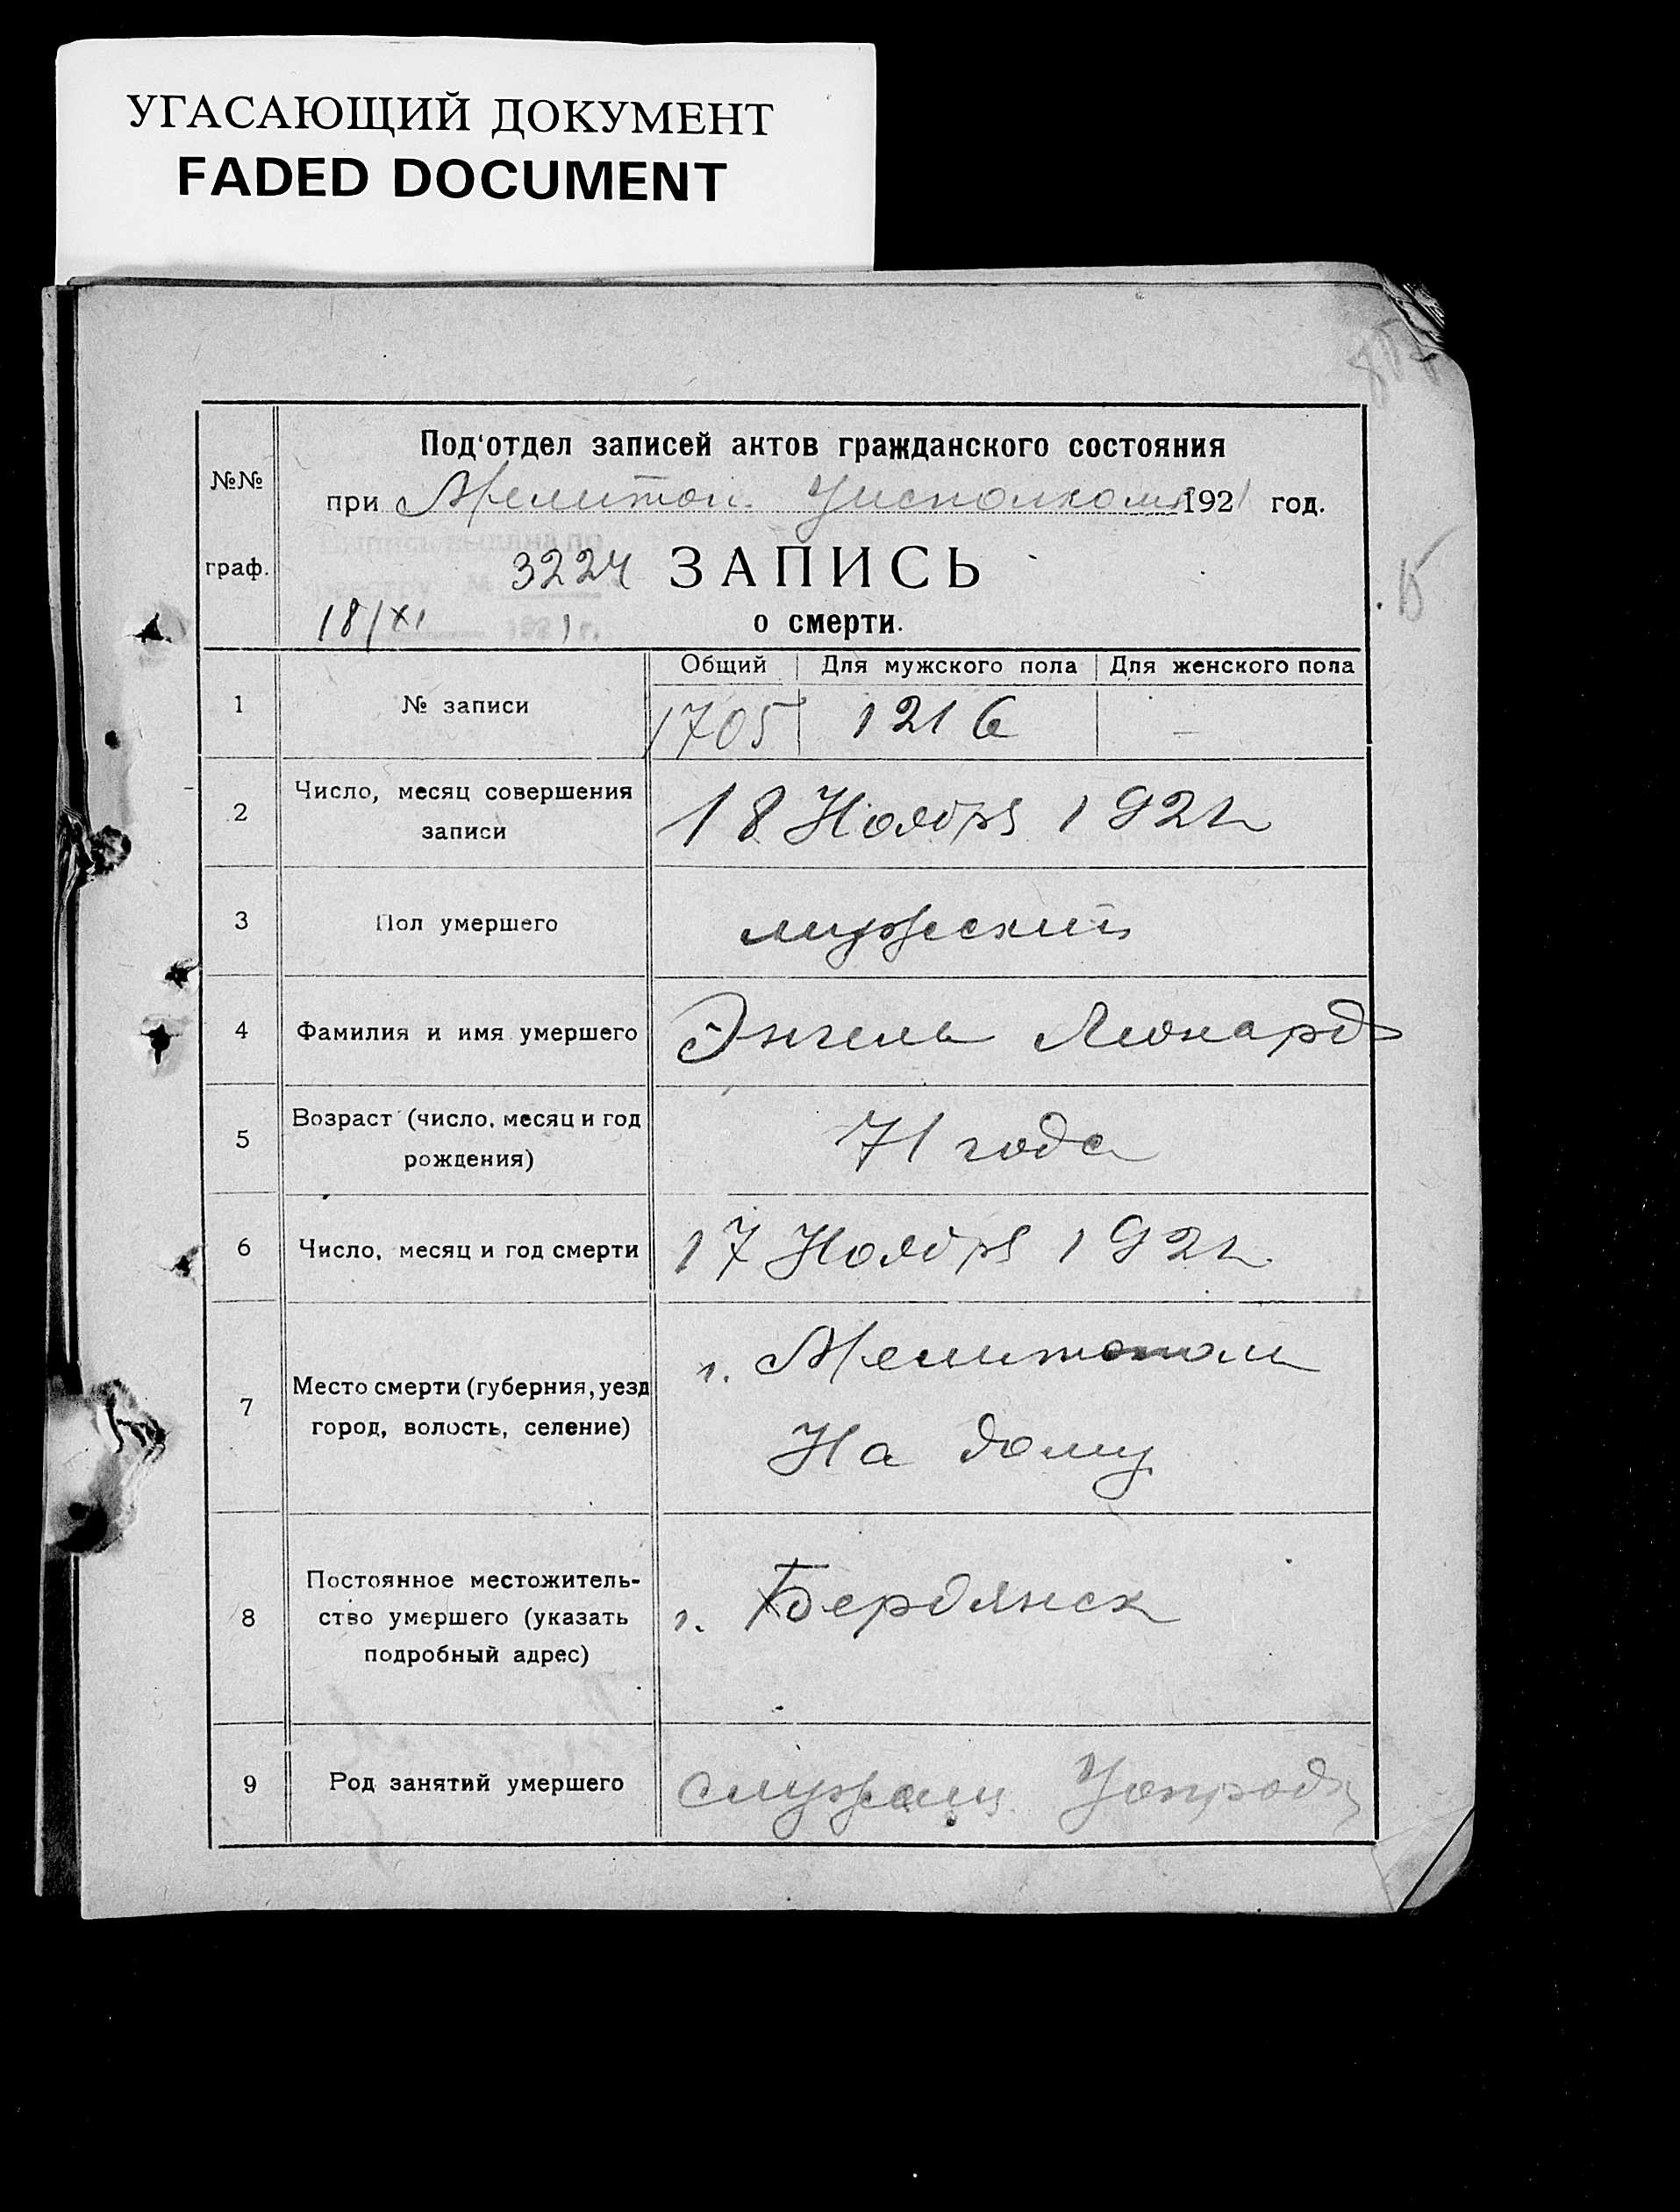 УГАСАЮЩИЙ ДОКУМЕНТ
FADED DOCUMENT
№№
граф.
Под'отдел записей актов гражданского состояния
при Мелитоп. Уисполкоме 1921 год.
Выпись выдана по
реестру №
3224 ЗАПИСЬ
18/XI 1921 г.
о смерти.
Общий Для мужского пола Для женского пола
1 № записи 1705 1216 -
2 Число, месяц совершения
записи
18 Ноября 1921 г.
3 Пол умершего мужеский
4 Фамилия и имя умершего Энгель Леонард
5 Возраст (число, месяц и год
рождения)
71 года
6 Число, месяц и год смерти 17 Ноября 1921 г.
7 Место смерти (губерния, уезд
город, волость, селение)
г. Мелитополь
На дому
8 Постоянное местожитель-
ство умершего (указать
подробный адрес)
г. Бердянск
9 Род занятий умершего служащ.